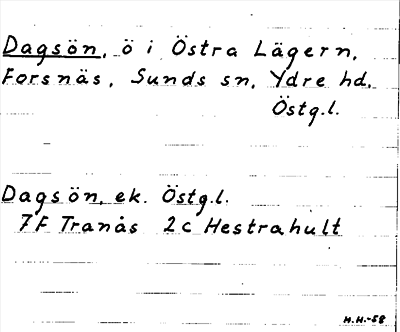 Dagsön, ö i Östra Lägern,
Forsnäs, Sunds sn, Ydre hd.
Östg.l.
Dagsön, ek. Östg.l.
7F Tranås 2c Hestrahult
H.H.-58